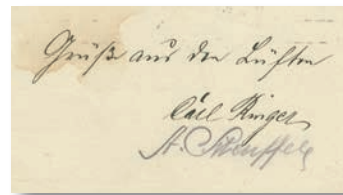 Grüße aus den Lüften
Carl Ringer
A. Steuffer